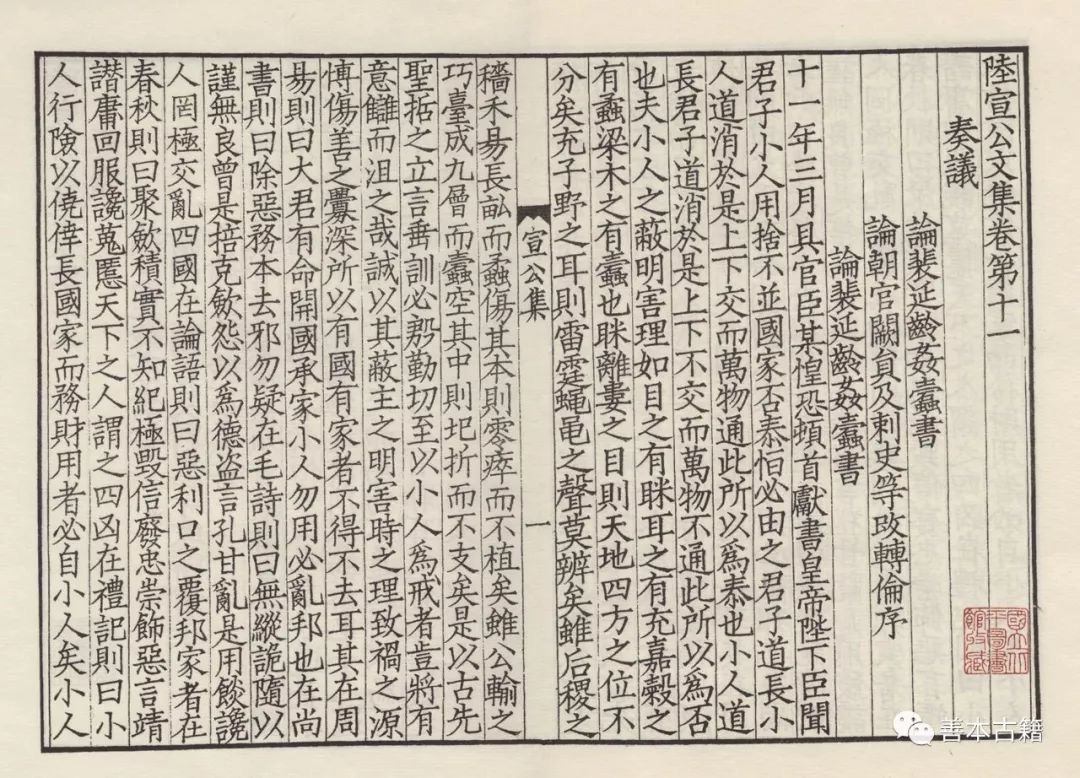 陸宣公文集卷第十一
奏議
論裴延齡姦蠹書
論朝官闕貟及刺史等改轉倫序
論裴延齡姦蠹書
十一年三月具官臣某惶恐頓首獻書皇帝陛下臣聞
君子小人用捨不並國家否泰恒必由之君子道長小
人道消於是上下交而萬物通此所以爲泰也小人道
長君子道消於是上下不交而萬物不通此所以爲否
也夫小人之蔽明害理如目之有眯耳之有充嘉穀之
有蟊梁木之有蠹也眯離婁之目則天地四方之位不
分矣充子野之耳則雷霆蝇黽之聲莫辨矣雖后稷之
宣公集
一
穡禾易長畝而蟊傷其本則零瘁而不植矣雖公輸之
巧臺成九層而蠹空其中則圮折而不支矣是以古先
聖哲之立言垂訓必殷勤切至以小人爲戒者豈將有
意讎而沮之哉誠以其蔽主之明害時之理致禍之源
博傷善之釁深所以有國有家者不得不去耳其在周
易則曰大君有命開國承家小人勿用必亂邦也在尚
書則曰除惡務本去邪勿疑在毛詩則曰無縱詭隨以
謹無良曾是掊克歛怨以爲德盗言孔甘亂是用餤讒
人罔極交亂四國在論語則曰惡利口之覆邦家者在
春秋則曰聚歛積實不知紀極毀信廢忠崇飾惡言靖
譖庸回服讒蒐慝天下之人謂之四凶在禮記則曰小
人行險以僥倖長國家而務財用者必自小人矣小人
善本古籍